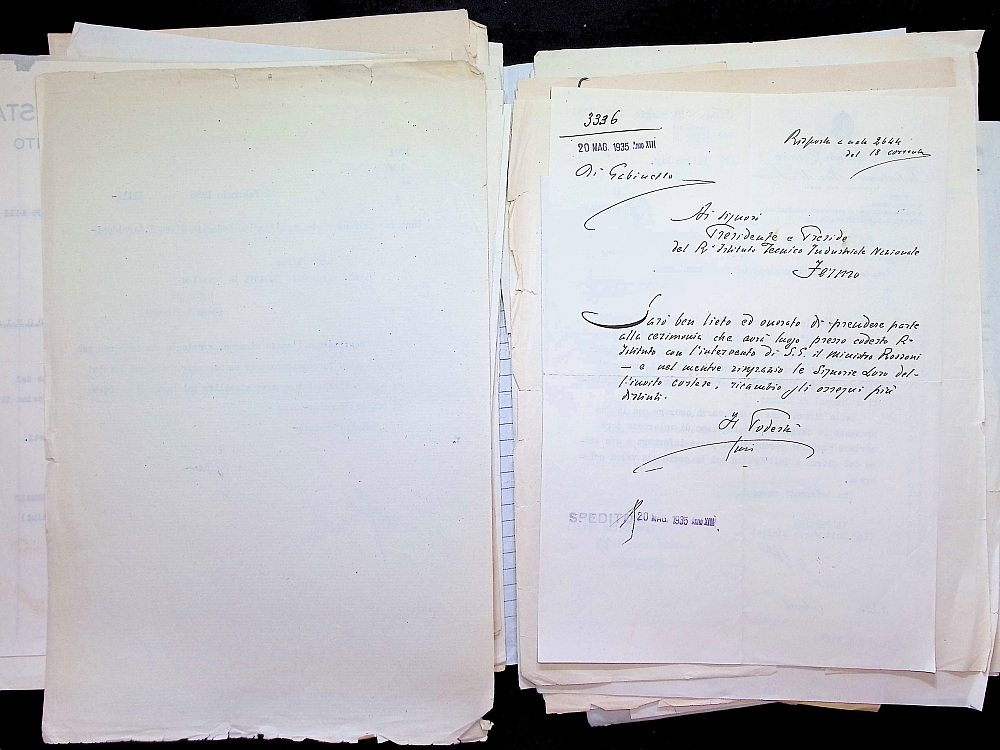 3396
20 MAG. 1935 ANNO XIII
Risposta a nota 2644
del 18 corrente
Di Gabinetto
Ai Signori
Presidente e Preside
del R° Istituto Tecnico Industriale Nazionale
Fermo
Sarò ben lieto ed onorato di prendere parte
alla cerimonia che avrà luogo presso codesto R.
Istituto con l'intervento di S.E. il ministro Rossoni
— e nel mentre ringrazio le Signorie Loro del-
l'invito cortese, ricambio gli ossequi più
distinti.
Il Podestà
SPEDITO 20 MAG. 1935 ANNO XIII